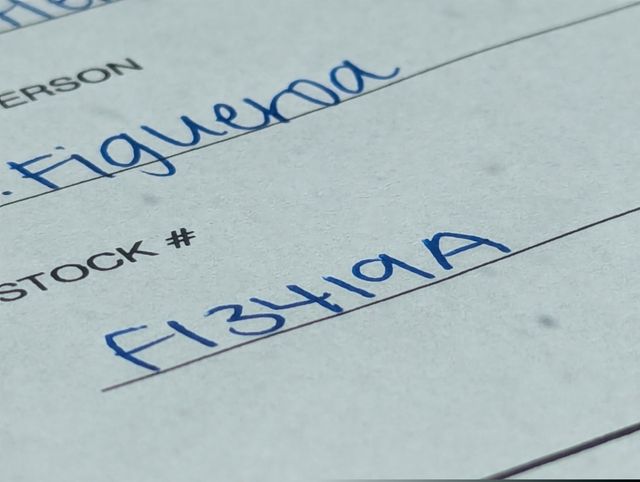 ERSON
. Figueroa
STOCK #
F13419A